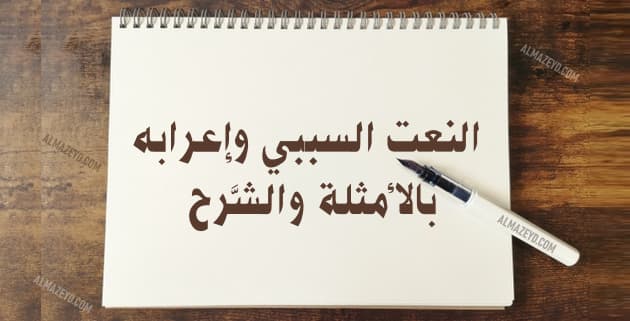 ALMAZEYD.COM
ALMAZEYD.COM
النعت السببي وإعرابه
بالأمثلة والشَّرح
ALMAZEYD.COM
ALMAZEYD.COM